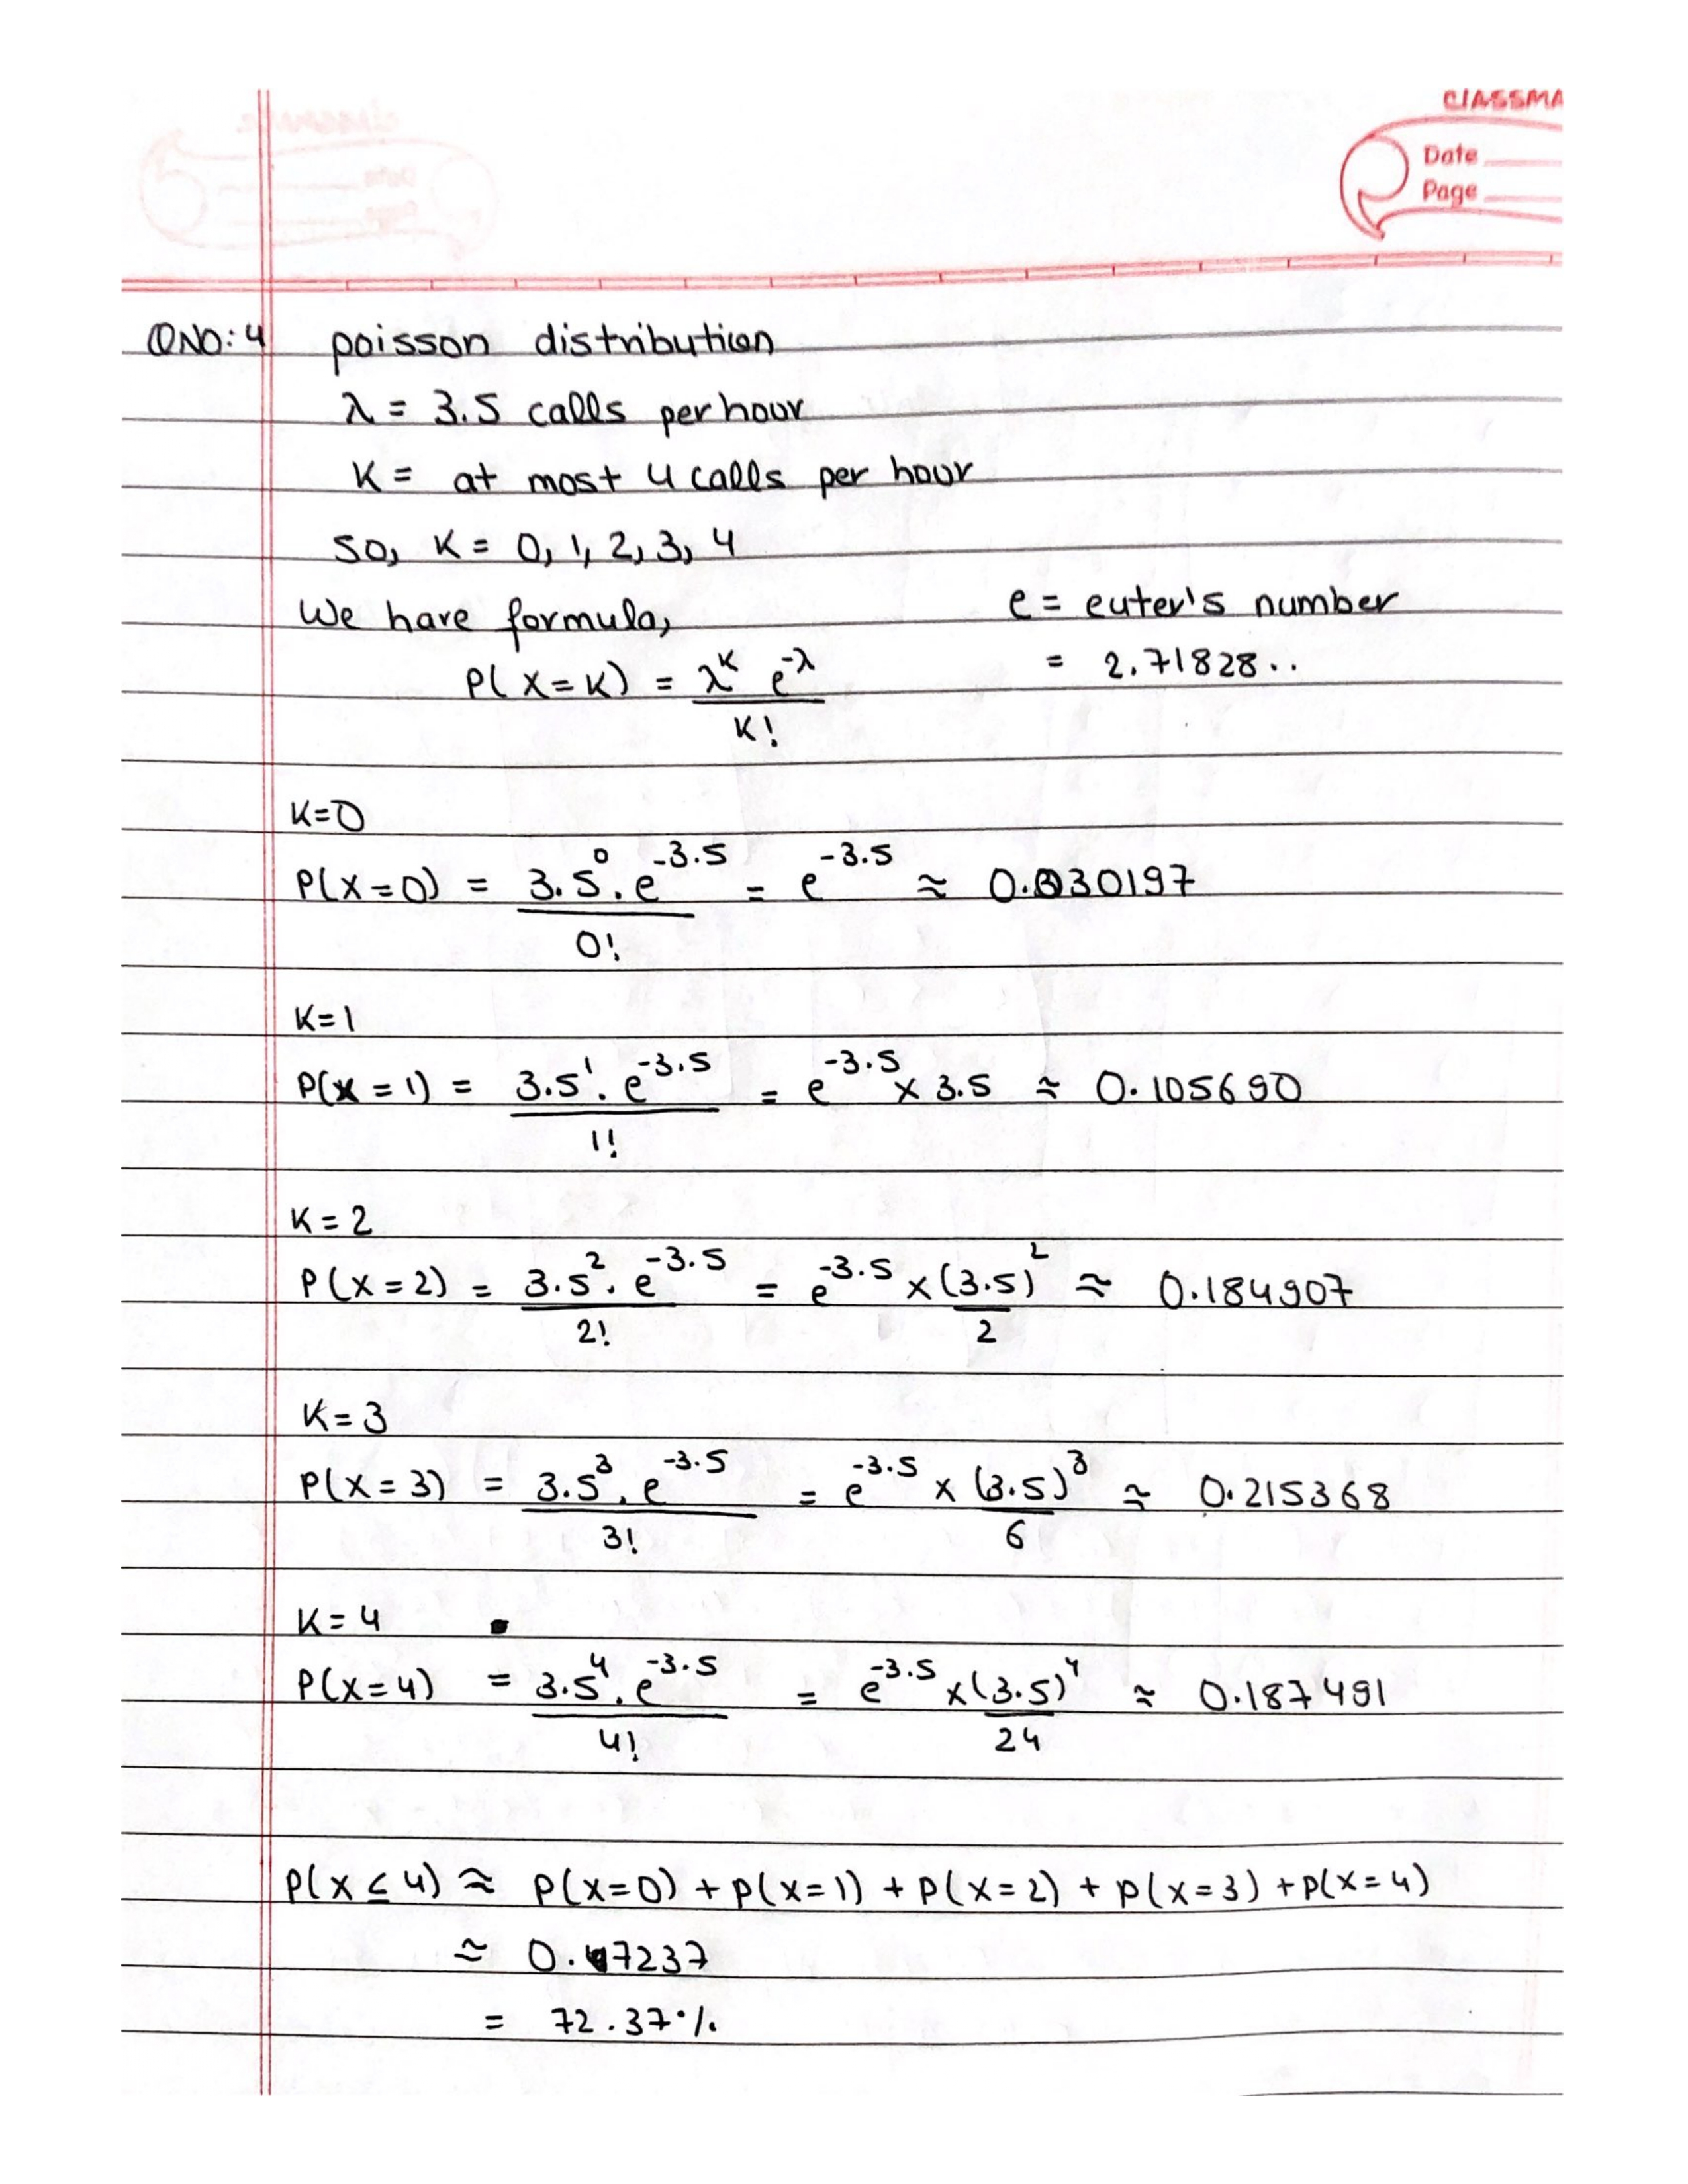 CLASSMA
Date
Page
QNO:4 poisson distribution
λ = 3.5 calls per hour
K = at most 4 calls per hour
so, K = 0, 1, 2, 3, 4
We have formula, e = euter's number
P(X=K) = λ^K e^-λ / K! = 2.71828..
K=0
P(X=0) = 3.5^0 . e^-3.5 / 0! = e^-3.5 ≈ 0.030197
K=1
P(X=1) = 3.5^1 . e^-3.5 / 1! = e^-3.5 × 3.5 ≈ 0.105690
K=2
P(X=2) = 3.5^2 . e^-3.5 / 2! = e^-3.5 × (3.5)^2 / 2 ≈ 0.184907
K=3
P(X=3) = 3.5^3 . e^-3.5 / 3! = e^-3.5 × (3.5)^3 / 6 ≈ 0.215368
K=4
P(X=4) = 3.5^4 . e^-3.5 / 4! = e^-3.5 × (3.5)^4 / 24 ≈ 0.187491
P(X ≤ 4) ≈ P(X=0) + P(X=1) + P(X=2) + P(X=3) + P(X=4)
≈ 0.7237
= 72.37%